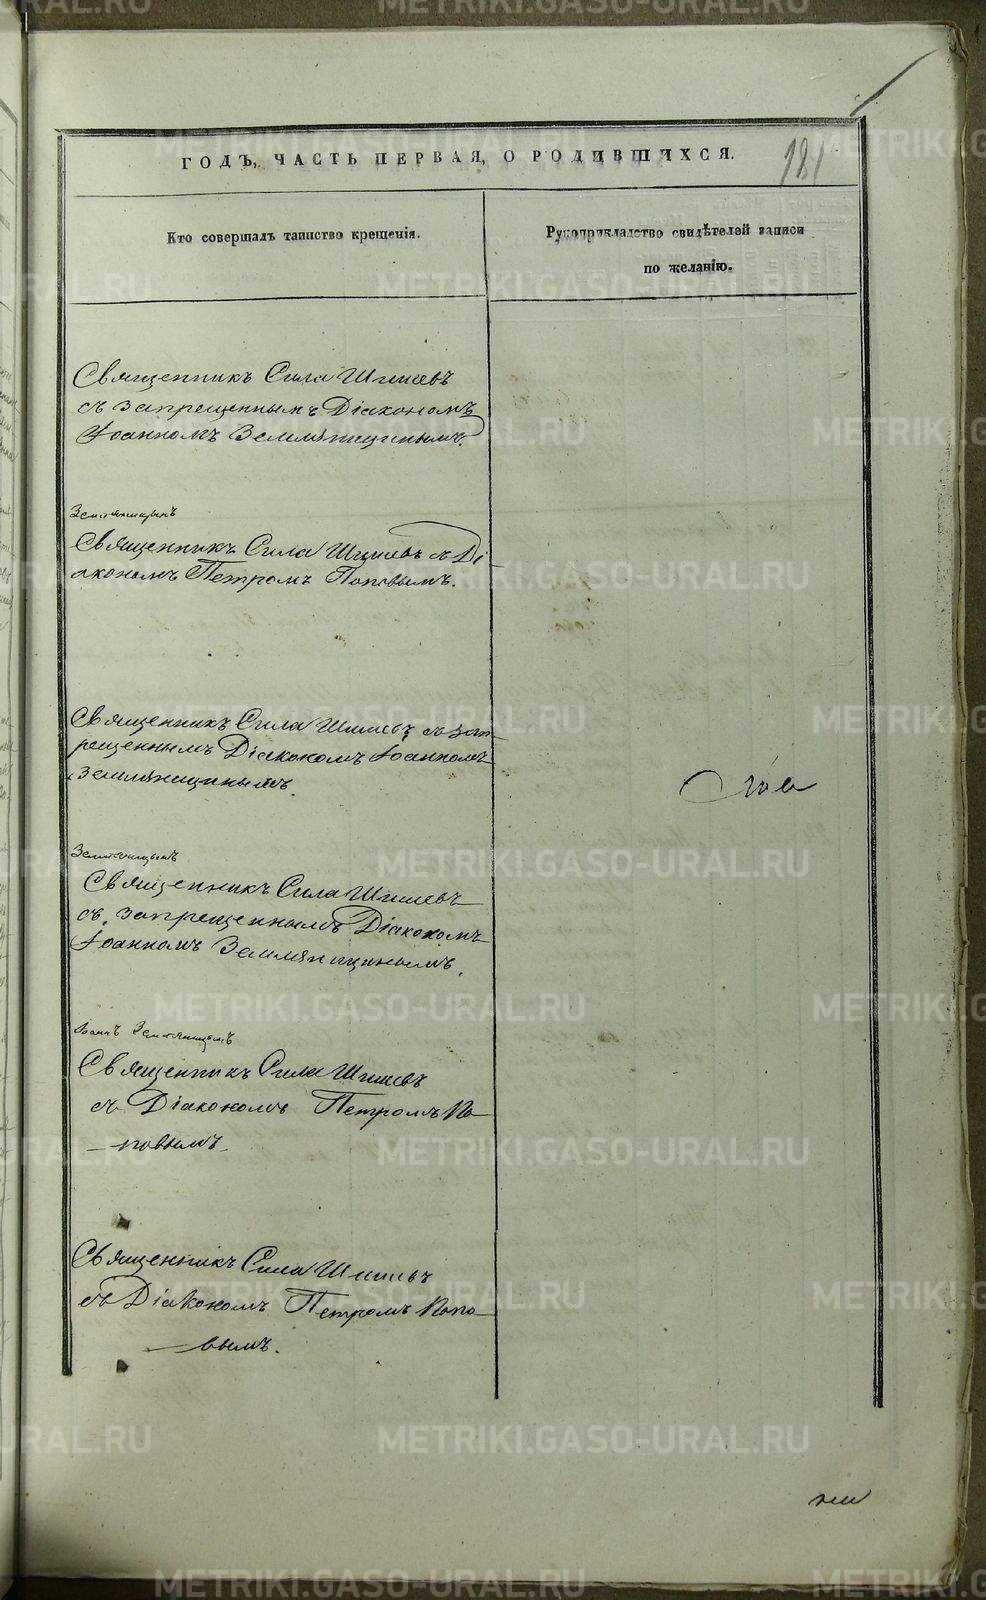 181
ГОДЪ, ЧАСТЬ ПЕРВАЯ, О РОДИВШИХСЯ.
Кто совершалъ таинство крещенія.
Рукоприкладство свидѣтелей записи
по желанію.
Священникъ Сила Шишевъ
съ запрещеннымъ Діакономъ
Іоанномъ Земляницинымъ.
Священникъ Сила Шишевъ съ Ді-
акономъ Петромъ Поповымъ.
Священникъ Сила Шишевъ съ зап-
рещеннымъ Діакономъ Іоанномъ
Земляницинымъ.
Священникъ Сила Шишевъ
съ запрещеннымъ Діакономъ
Іоанномъ Земляницинымъ.
Священникъ Сила Шишевъ
съ Діакономъ Петромъ По-
повымъ.
Священникъ Сила Шишевъ
съ Діакономъ Петромъ Попо-
вымъ.
METRIKI.GASO-URAL.RU